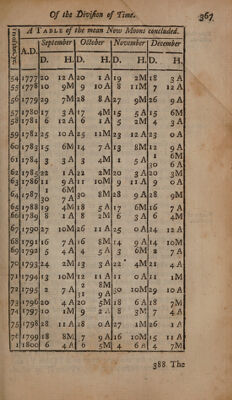 Of the Division of Time. 367
A TABLE of the mean New Moons concluded.
A.D. September October November December
D. H. D. H. D. H. D. H.
54 1777 20 12 A 20 1 A 19 2M 18 3 A
55 1778 10 9M 9 10 A 8 11M 7 12 A
56 1779 29 7M 28 8 A 27 9M 26 9 A
57 1780 17 3 A 17 4M 15 5 A 15 6M
58 1781 6 12 A 6 1 A 5 2M 4 3 A
59 1782 25 10 A 25 11M 23 12 A 23 0 A
60 1783 15 6M 14 7 A 13 8M 12 9 A
61 1784 3 3 A 3 4M 1 5 A 1 6M
30 6 A
62 1785 22 1 A 22 2M 20 3 A 20 3M
63 1786 11 9 A 11 10M 9 11 A 9 0 A
1 6M
64 1787 30 7 A 30 8M 28 9 A 28 9M
65 1788 19 4M 18 5 A 17 6M 16 7 A
66 1789 8 1 A 8 2M 6 3 A 6 4M
67 1790 27 10M 26 11 A 25 0 A 24 12 A
68 1791 16 7 A 16 8M 14 9 A 14 10M
69 1792 5 4 A 5 A 3 6M 2 7 A
70 1793 24 2M 23 3 A 22 4M 21 4 A
71 1794 13 10M 12 11 A 11 0 A 11 1M
72 1795 2 7 A 2 8M 30 10M 29 10 A
31 9 A
73 1796 20 4 A 20 5M 18 6 A 18 7M
74 1797 10 1M 9 2 A 8 3M 7 4 A
75 1798 28 11 A 28 0 A 27 1M 26 1 A
76 1799 18 8M 7 9 A 16 10M 15 11 A
1 1800 6 4 A 6 5M 4 6 A 4 7M
388 The